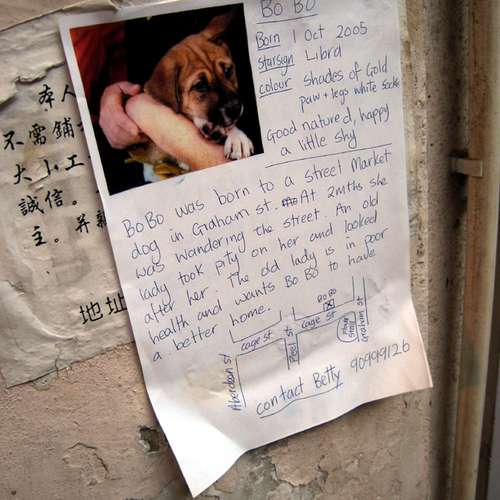 BO BO
Born 1 Oct 2005
Starsign Libra
colour Shades of Gold
paw + legs white socks
Good natured, happy
a little shy
BoBo was born to a street Market
dog in Graham st. At 2mths she
was wandering the street. An old
lady took pity on her and looked
after her. The old lady is in poor
health and wants BO BO to have
a better home.
BOBO
cage st
cage st
Peel st
Graham st
Aberdean st
contact Betty 90999126
本人
不需鋪
大小工
誠信。
主。并
地址